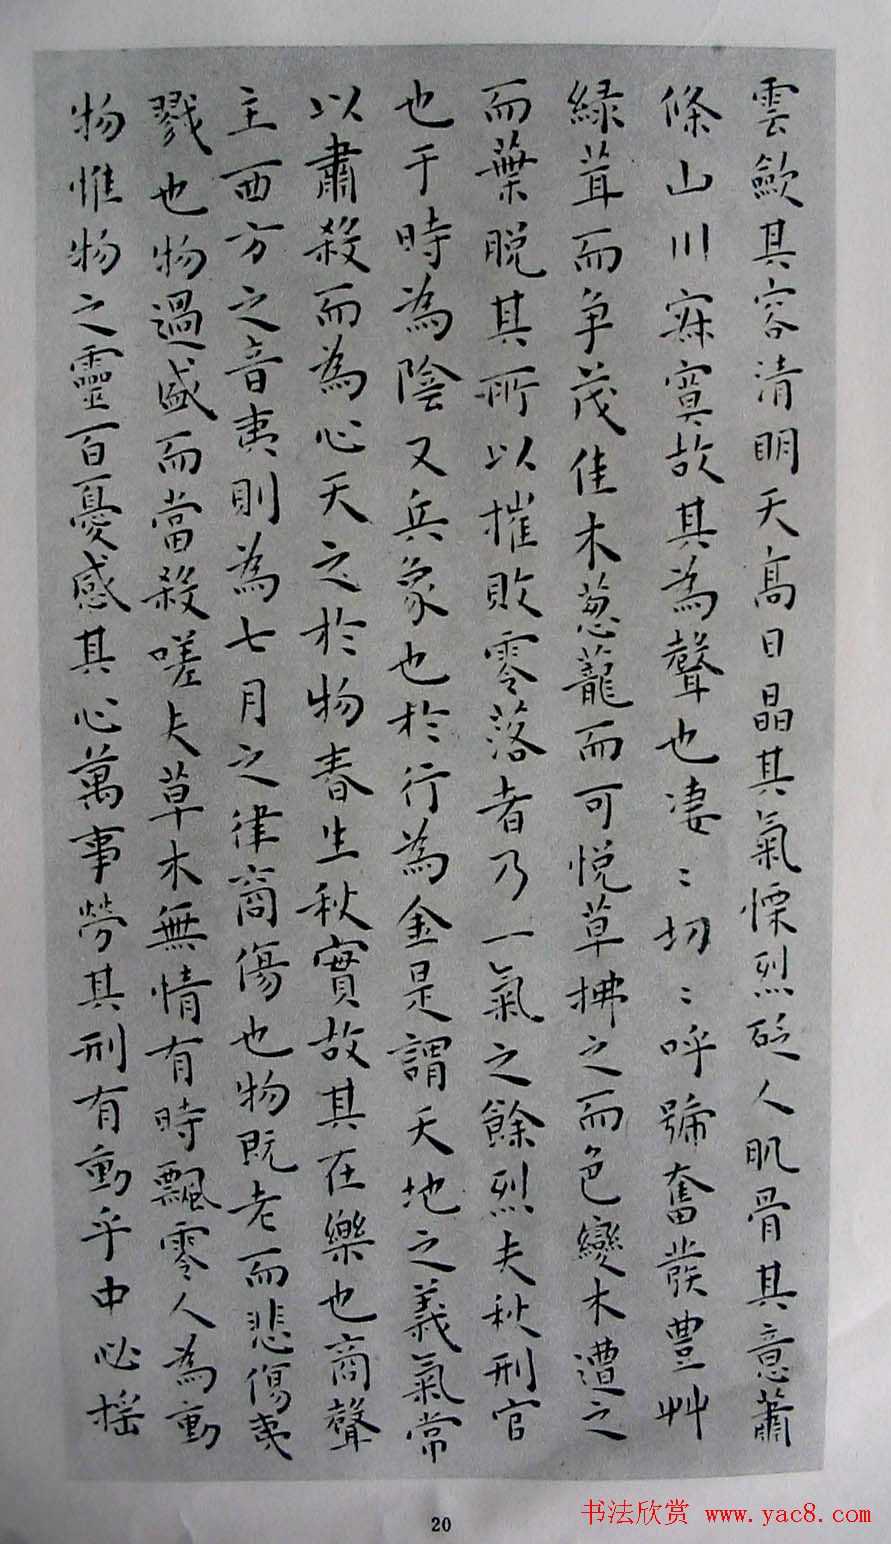 雲歛其容清明天高日晶其氣慄烈砭人肌骨其意蕭
條山川寂寞故其為聲也凄〻切〻呼號奮發豊艸
緑茸而争茂佳木葱蘢而可悦草拂之而色變木遭之
而葉脱其所以摧敗零落者乃一氣之餘烈夫秋刑官
也于時為陰又兵象也於行為金是謂天地之義氣常
以肅殺而為心天之於物春生秋實故其在樂也商聲
主西方之音夷則為七月之律商傷也物既老而悲傷夷
戮也物過盛而當殺嗟夫草木無情有時飄零人為動
物惟物之靈百憂感其心萬事勞其刑有動乎中必揺
20
书法欣赏 www.yac8.com